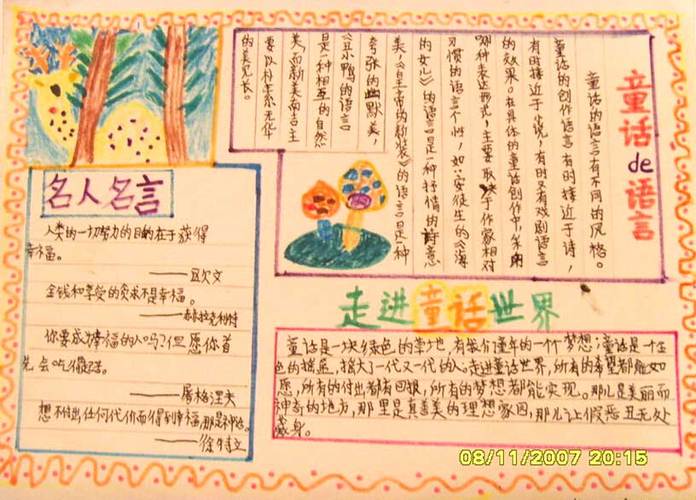 童话de语言
童话的语言有不同的风格。
童话的创作语言有时接近于诗,
有时接近于小说,有时又有戏剧语言
的效果。在具体的童话创作中,采用
哪种表达形式,主要取决于作家相对
习惯的语言个性,如:安徒生的《海
的女儿》的语言是一种抒情的诗意
美,《皇帝的新装》的语言是一种
夸张的幽默美,
《丑小鸭的语言
是一种相互的自然
美,而新美南吉主
要以朴素无华
的美见长。
名人名言
人类的一切努力的目的在于获得
幸福。
——欧文
金钱和享受的贪求不是幸福。
你要成为幸福的人吗?但愿你首
先会吃
——屠格涅夫
想不付出任何代价而得到幸福,那是神话。
——徐特立
走进童话世界
童话是一块绿色的草地,有我们童年的一个梦想;童话是一个金
色的摇篮,摇大了一代又一代的人;走进童话世界,所有的希望都能如
愿,所有的付出都有回报,所有的梦想都能实现。那儿是美丽而
神奇的地方,那里是真善美的理想家园,那儿让假恶丑无处
藏身。
08/11/2007 20:15